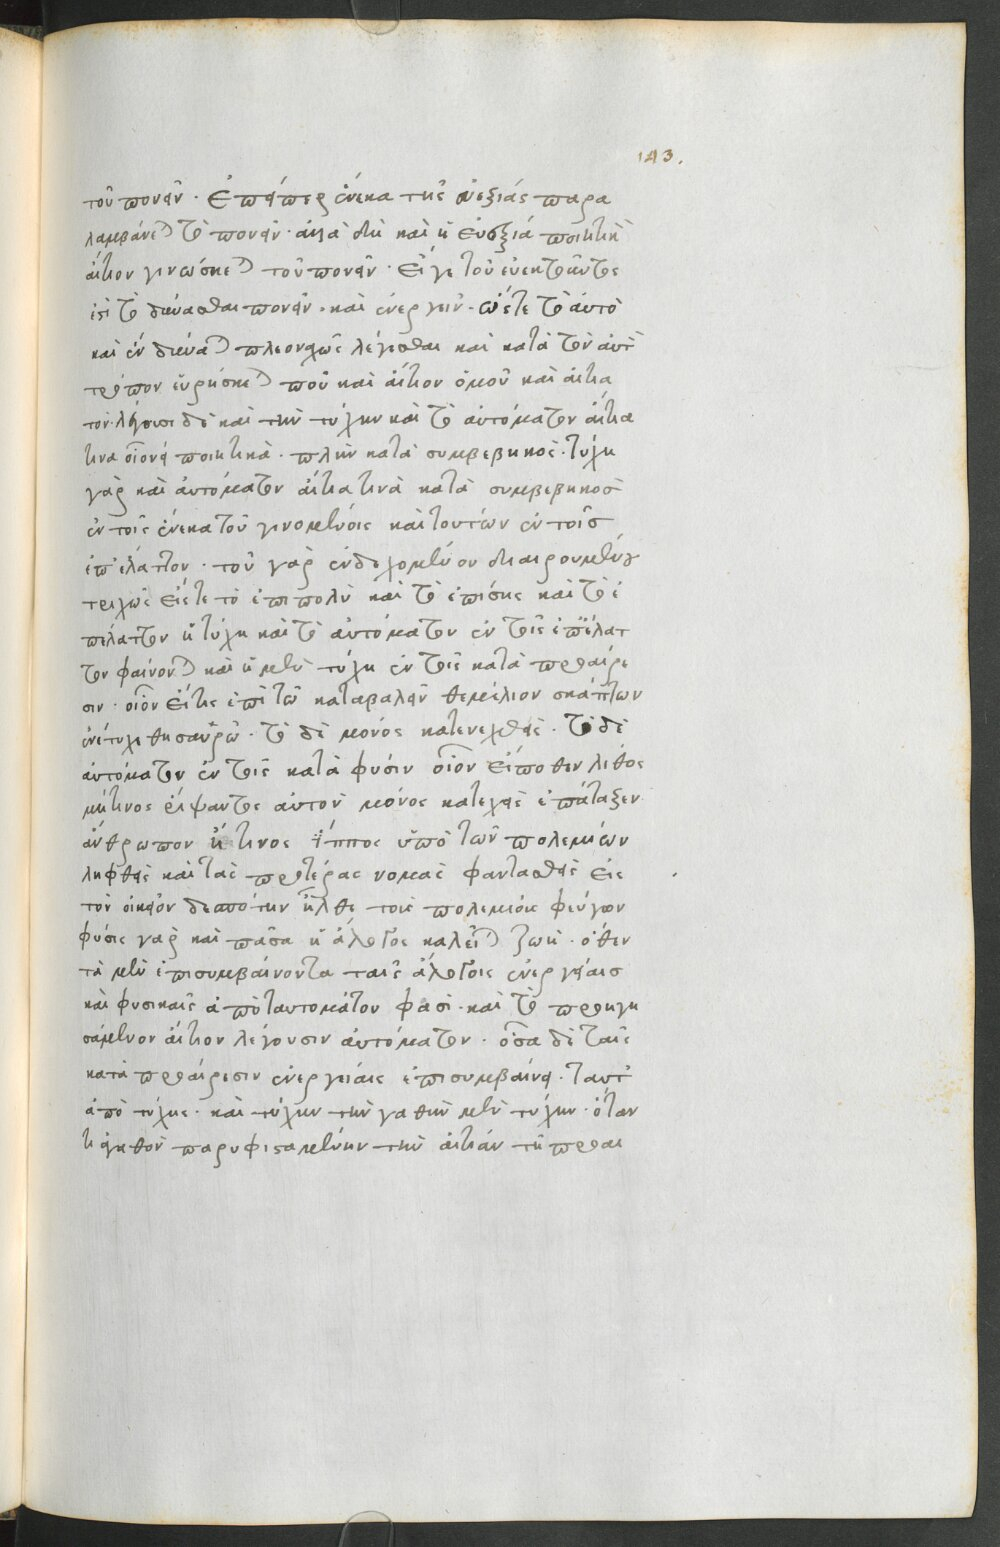 143.
τοῦ πονεῖν. Ἐπείπερ ἕνεκα τῆς εὐεξίας παρα
λαμβάνεται τὸ πονεῖν· ἀλλὰ δὴ καὶ ἡ εὐεξία ποιητικὴ
αἴτιον γινώσκεται τοῦ πονεῖν. Εἴγε τοῦ εὐεκτοῦντος
ἐστὶ τὸ δύνασθαι πονεῖν. καὶ ἐνεργεῖν. ὥστε τὸ αὐτὸ
καὶ ἓν δύναται πλεοναχῶς λέγεσθαι καὶ κατὰ τὸν αὐτὸν
τρόπον εὑρίσκεται ποῦ καὶ αἴτιον ὁμοῦ καὶ αἰτια
τὸν. λέγουσι δὲ καὶ τὴν τύχην καὶ τὸ αὐτόματον αἴτια
τινα οἱονεὶ ποιητικὰ. πλὴν κατὰ συμβεβηκὸς. τύχη
γὰρ καὶ αὐτόματον αἴτια τινὰ κατὰ συμβεβηκὸσ
ἐν τοῖς ἕνεκα τοῦ γινομένοις καὶ τούτων ἐν τοῖσ
ἐπ' ἔλαττον. τοῦ γὰρ ἐνδεχομένου διαιρουμένου
τριχῶς εἴς τε τὸ ἐπιπολὺ καὶ τὸ ἐπίσης καὶ τὸ ἐ
πέλαττον ἡ τύχη καὶ τὸ αὐτόματον ἐν τοῖς ἐπ' ἔλατ
τον φαίνονται καὶ ἡ μὲν τύχη ἐν τοῖς κατὰ προαίρε
σιν. οἷον εἴτις ἐπὶ τῶ καταβαλεῖν θεμέλιον σκάπτων
ἐνέτυχε θησαυρῶ. τὸ δὲ μόνος κατενεχθεὶς. Τὸ δὲ
αὐτόματον ἐν τοῖς κατὰ φύσιν οἷον εἴποθεν λίθος
μήτινος ῥίψαντος αὐτὸν μόνος κατεχθεὶς ἐπάταξεν
ἄνθρωπον ἤ τινος ἵππος ὑπὸ τῶν πολεμίων
ληφθεὶς καὶ τὰς προτέρας νομὰς φαντασθεὶς εἰς
τὸν οἰκεῖον δεσπότην ἦλθε τοὺς πολεμίους φεύγων
φύσις γὰρ καὶ πᾶσα ἡ ἄλογος καλεῖται ζωή. ὅθεν
τὰ μὲν ἐπισυμβαίνοντα ταῖς ἀλόγοις ἐνεργείαισ
καὶ φυσικαῖς ἀπὸ ταυτομάτου φασὶ. καὶ τὸ προηγη
σάμενον αἴτιον λέγουσιν αὐτόματον. ὅσα δὲ ταῖς
κατὰ προαίρεσιν ἐνεργείαις ἐπισυμβαίνει. ταῦτα
ἀπὸ τύχης. καὶ τύχην τὴν γαθὴν μὲν τύχην. ὅταν
τι ἀγαθὸν παρυφισταμένην τὴν αἰτίαν τῆ προαι